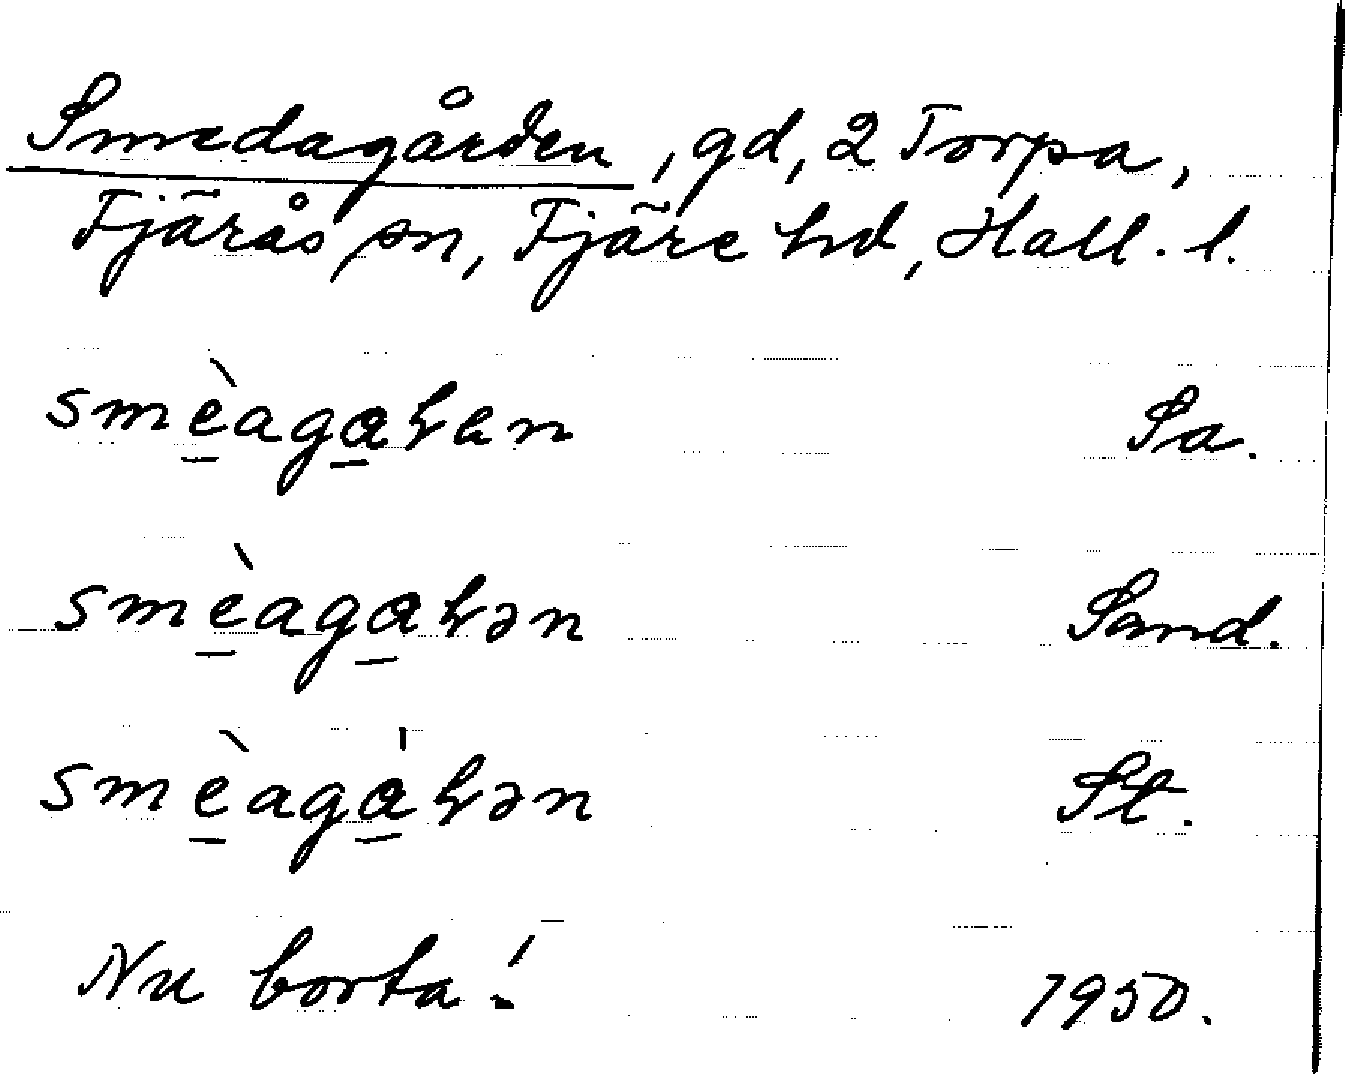 Smedagården, gd, 2 Torpa,
Fjärås sn, Fjäre hd, Hall. l.
smèagaɽen Sa.
smèagaɽən Sand.
smèagàɽən St.
Nu borta! 1950.